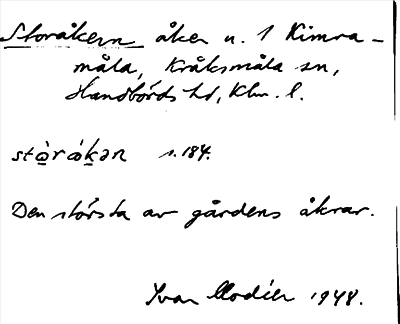 Storåkern åker u. 1 Kimra-
måla, Kråksmåla sn,
Handbörds hd, Klm. l.
stò̱ráḵən s. 184.
Den största av gårdens åkrar.
Ivar Modéer 1948.